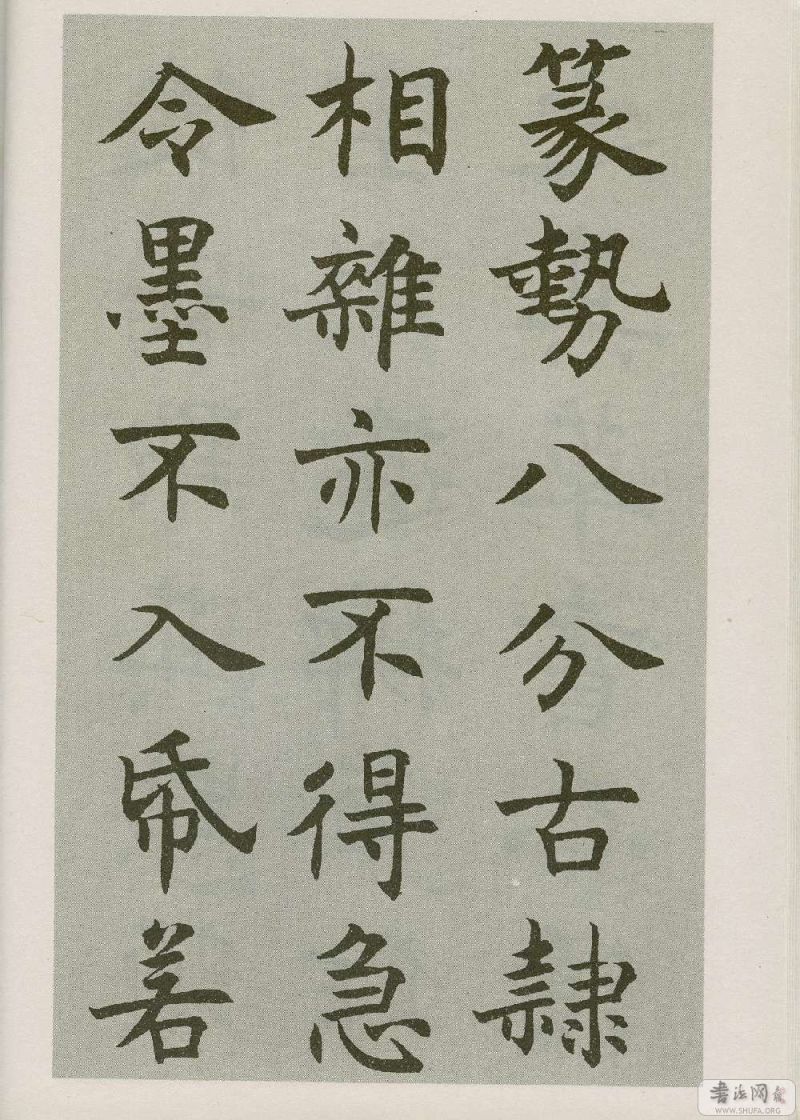 篆勢八分古隷
相雜亦不得急
令墨不入帋若
書法网
WWW.SHUFA.ORG